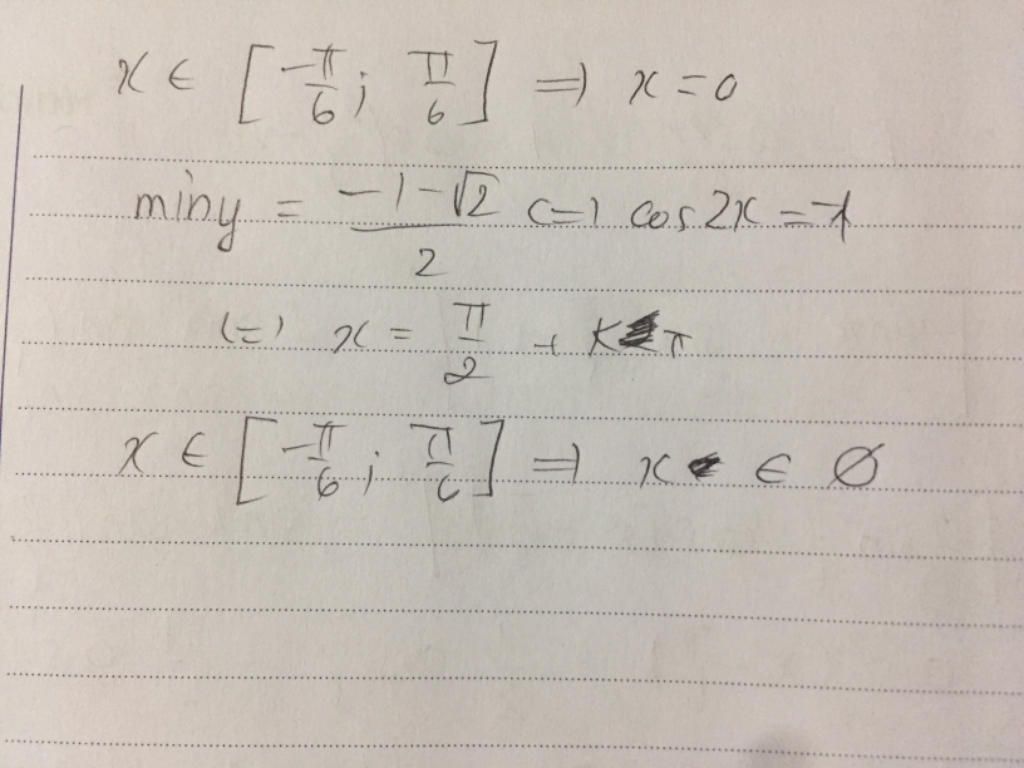 x ∈ [-π/6; π/6] => x = 0
min y = (-1-√2)/2 <=> cos 2x = -1
<=> x = π/2 + kπ
x ∈ [-π/6; π/6] => x ∈ Ø